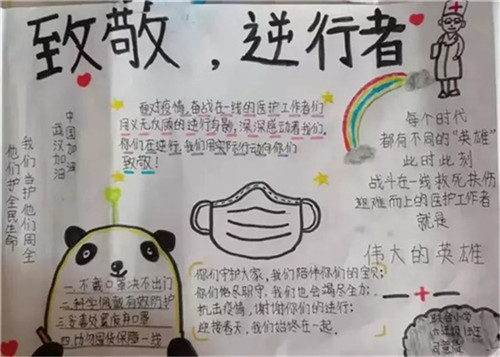 致敬，逆行者
面对疫情，奋战在一线的医护工作者们
用义无反顾的逆行身影，深深感动着我们。
你们在逆行，我们用实际行动向你们
致敬！
中国加油
武汉加油
我们当护他们周全
他们护全民生命
每个时代
都有不同的"英雄"
此时此刻
战斗在一线救死扶伤
迎难而上的医护工作者
就是
伟大的英雄
一、不戴口罩决不出门
二、科学佩戴有效防护
三、妥善处置废弃口罩
四、
你们守护大家，我们陪伴你们的宝贝；
你们恪尽职守，我们也会竭尽全力；
抗击疫情，谢谢你们的逆行；
迎接春天，我们始终在一起。
小学